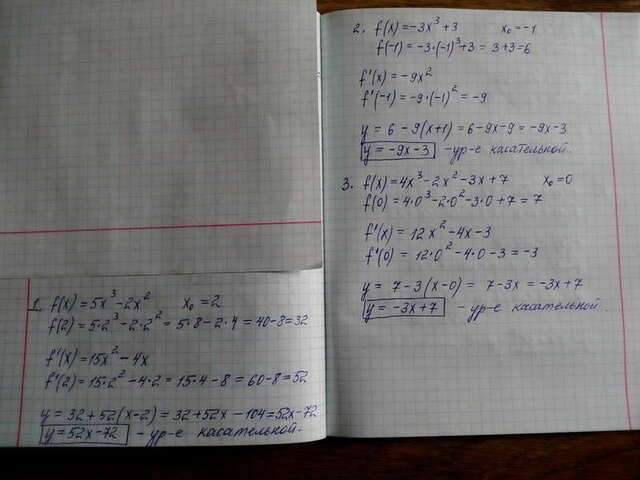 1. f(x) = 5x³ - 2x² x₀ = 2
f(2) = 5·2³ - 2·2² = 5·8 - 2·4 = 40 - 8 = 32
f'(x) = 15x² - 4x
f'(2) = 15·2² - 4·2 = 15·4 - 8 = 60 - 8 = 52
y = 32 + 52(x-2) = 32 + 52x - 104 = 52x - 72
y = 52x - 72 - ур-е касательной.
2. f(x) = -3x³ + 3 x₀ = -1
f(-1) = -3·(-1)³ + 3 = 3 + 3 = 6
f'(x) = -9x²
f'(-1) = -9·(-1)² = -9
y = 6 - 9(x+1) = 6 - 9x - 9 = -9x - 3
y = -9x - 3 - ур-е касательной.
3. f(x) = 4x³ - 2x² - 3x + 7 x₀ = 0
f(0) = 4·0³ - 2·0² - 3·0 + 7 = 7
f'(x) = 12x² - 4x - 3
f'(0) = 12·0² - 4·0 - 3 = -3
y = 7 - 3(x-0) = 7 - 3x = -3x + 7
y = -3x + 7 - ур-е касательной.